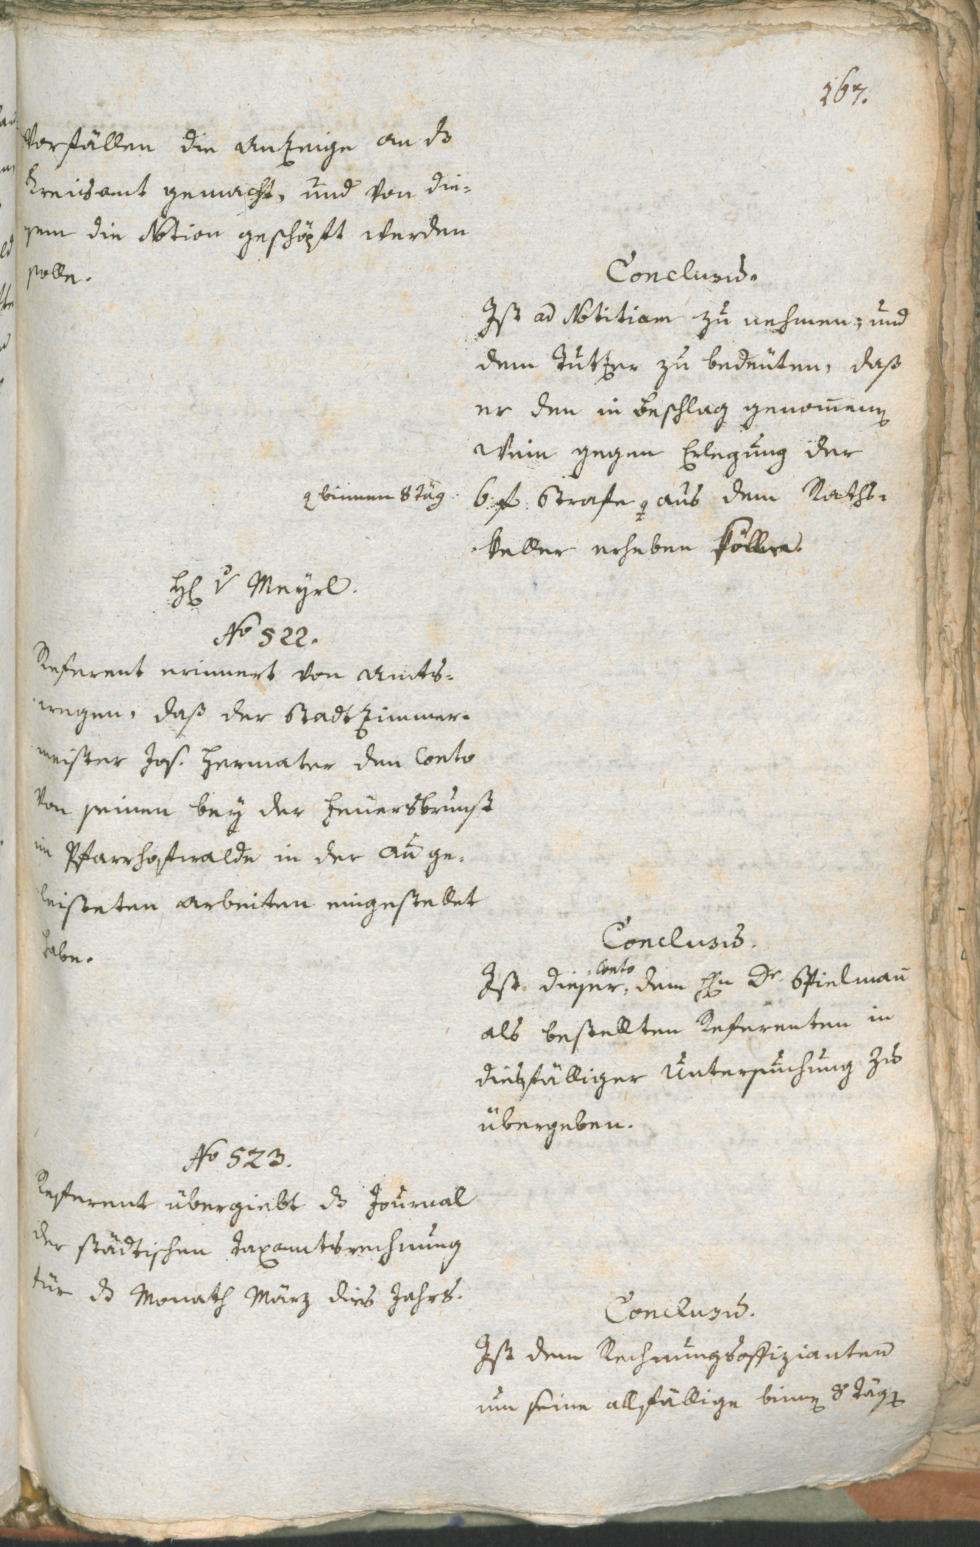 167.
Vorfällen die Anzeige an ds
Kreisamt gemacht, und von die-
sem die Notion geschöpft werden
solle.
Conclusus.
Ist ad Notitiam zu nehmen, und
dem Tutzer zu bedeuten, daß
er den in Beschlag genommen
Wein gegen Erlegung der
6 f Strafe aus dem Raths-
binnen 8 Täg
keller erheben
H v Meyrl.
No 522.
Referent erinnert von Amts-
wegen, daß der Stadtzimmer-
meister Jos. Hermater den Conto
von seinen bey der Feuersbrunst
im Pfarrhofwalde in der Au ge-
leisteten Arbeiten eingestellet
habe.
Conclusus.
Ist dieser Conto dem Hn Dr Spielman̄
als bestellten Referenten in
diesfälliger Untersuchung zu
übergeben.
No 523.
Referent übergiebt ds Journal
der städtischen Taxamtsrechnung
für ds Monath März dies Jahrs.
Conclusus.
Ist dem Rechnungsoffizianten
um seine allfällige binn 8 Täg